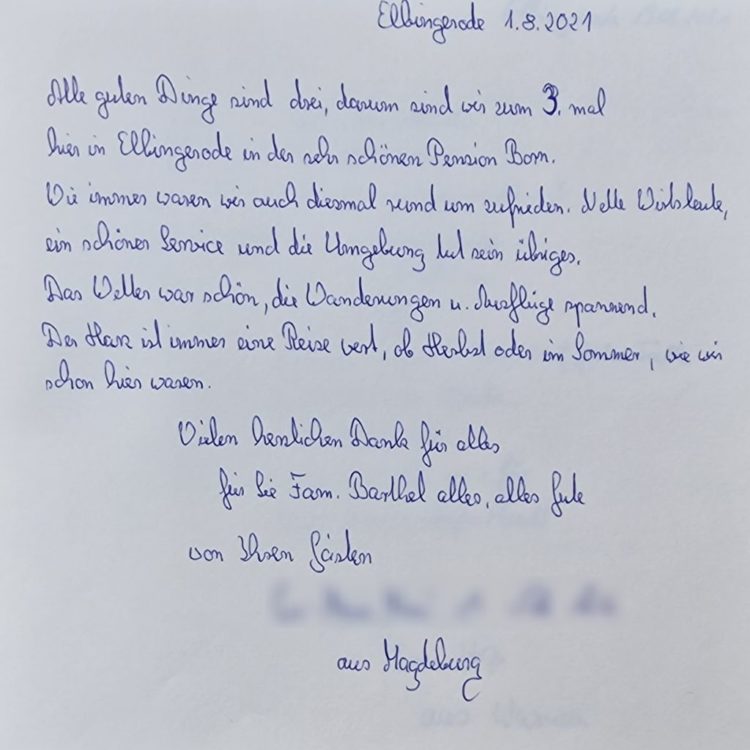 Elbingerode 1.8.2021
Alle guten Dinge sind drei, darum sind wir zum 3. mal
hier in Elbingerode in der sehr schönen Pension Born.
Wie immer waren wir auch diesmal rund um zufrieden. Nette Wirtsleute,
ein schöner Service und die Umgebung tut sein übriges.
Das Wetter war schön, die Wanderungen u. Ausflüge spannend.
Der Harz ist immer eine Reise wert, ob Herbst oder im Sommer, wie wir
schon hier waren.
Vielen herzlichen Dank für alles
für Sie Fam. Barthel alles, alles Gute
von Ihren Gästen
aus Magdeburg